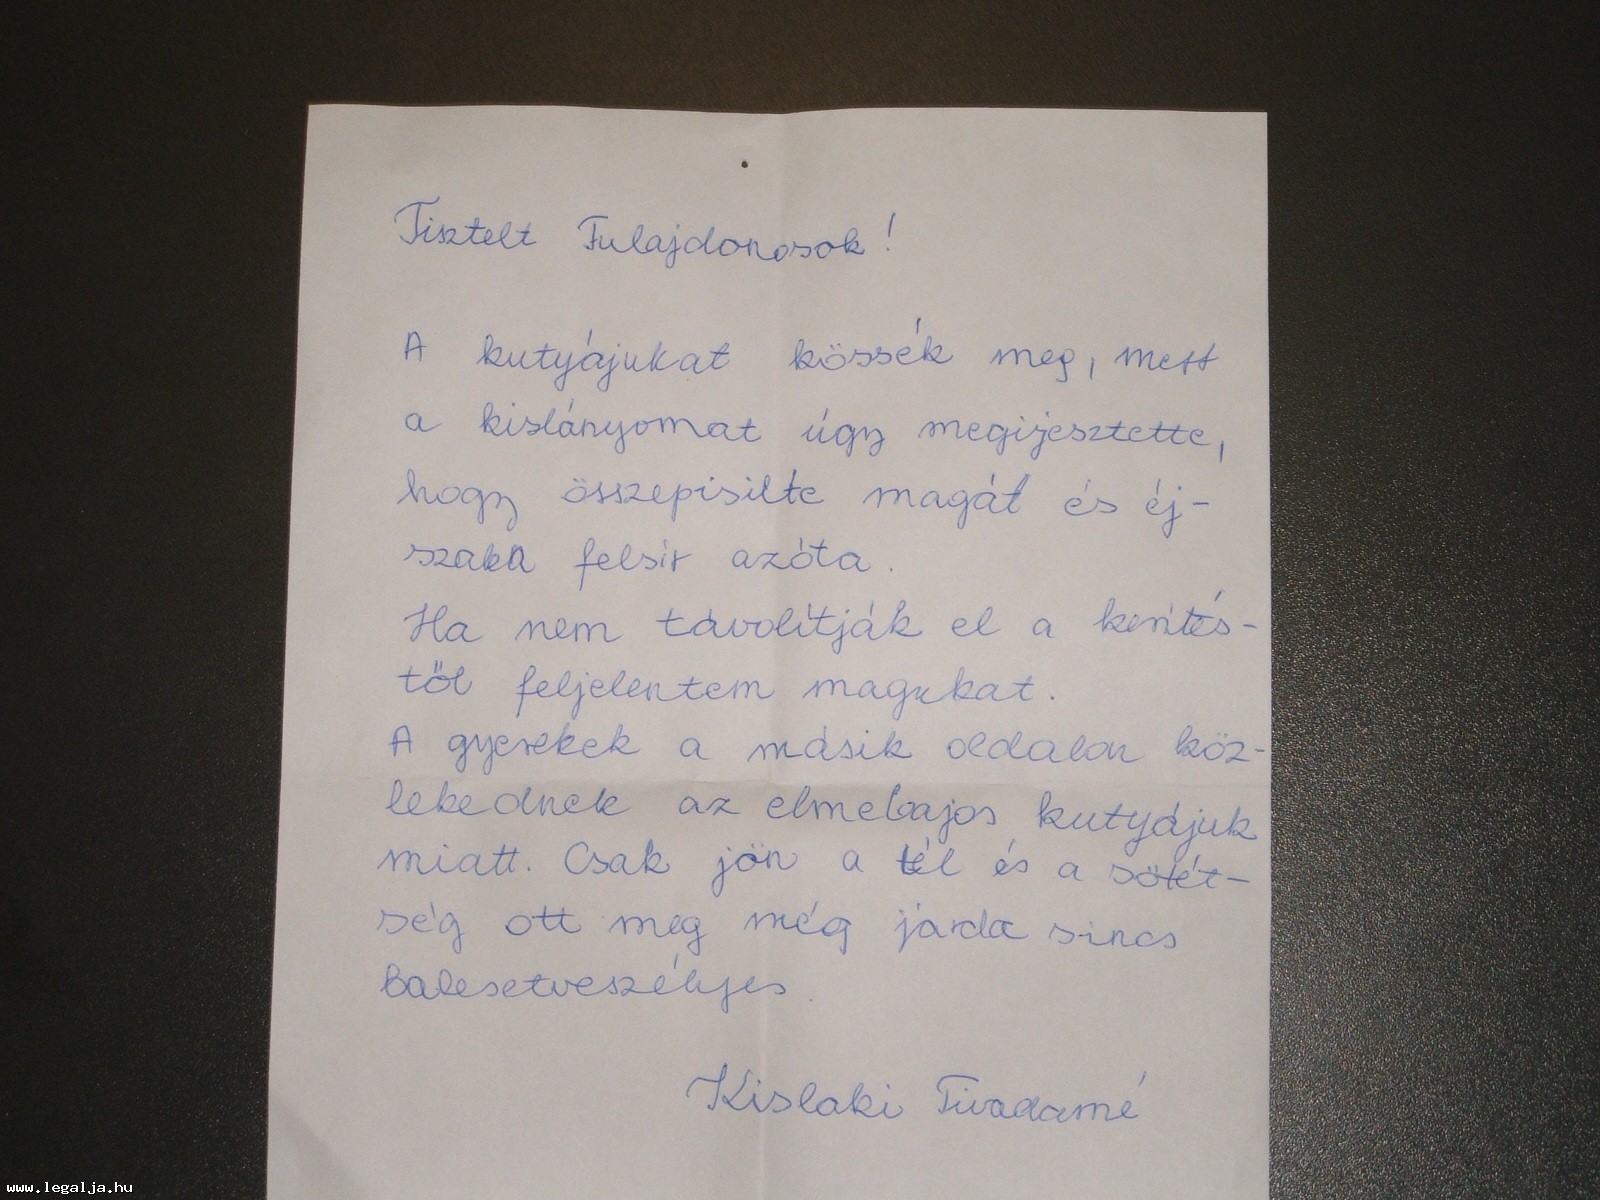 Tisztelt Tulajdonosok!
A kutyájukat kössék meg, mert
a kislányomat úgy megijesztette,
hogy összepisilte magát és éj-
szaka felsír azóta.
Ha nem távolítják el a kerítés-
től feljelentem magukat.
A gyerekek a másik oldalon köz-
lekednek az elmebajos kutyájuk
miatt. Csak jön a tél és a sötét-
ség ott meg még járda sincs
balesetveszélyes.
Kislaki Tivadarné
www.legalja.hu